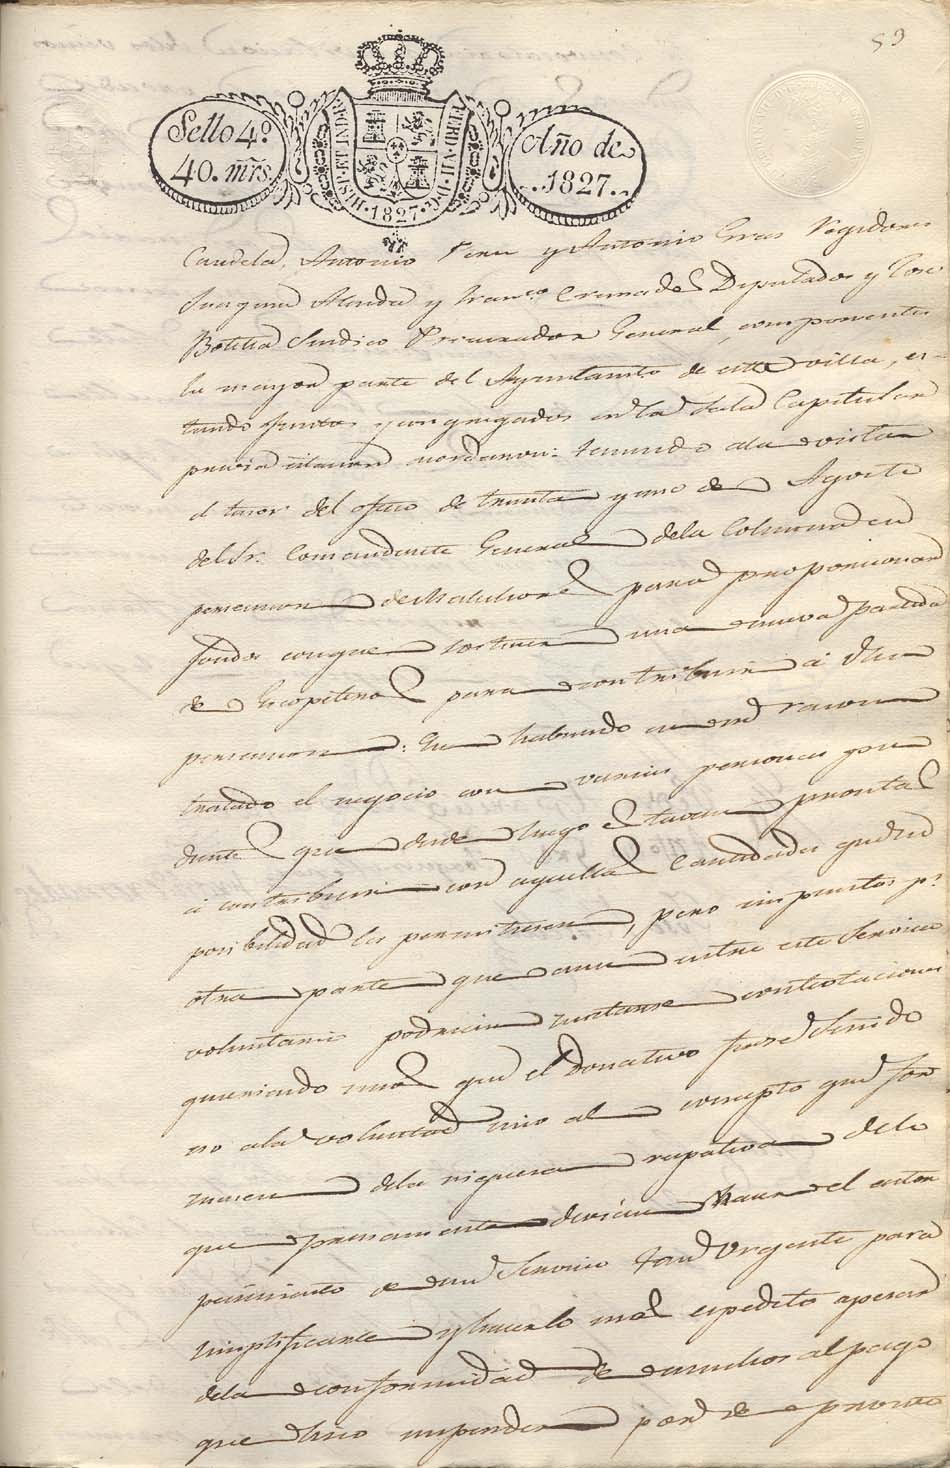 59
Sello 4º
40. mrs.
HISP. ET IND. R.
FERD. VII. D. G.
1827
Año de
1827.
Candela, Antonio Perez y Antonio Gras Regidores
Joaquin y Franco. Cremades Diputados y Jose
Botella Sindico Procurador General, componentes
la mayor parte del Ayuntamto. de esta villa, es-
tando juntos y congregados en la Sala Capitular
previa citacion acordaron: teniendo ala vista
el tenor del oficio de treinta y uno de Agosto
del Sr. Comandante General dela Columna en
persecucion de Malechores para proporcionar
fondos conque sostener una nueva partida
de Escopeteros para contribuir á dicha
persecucion: Que habiendo en su razon
tratado el negocio con varias personas pru
dentes que desde luego estavan prontas
á contribuir con aquellas Cantidades que su
posibilidad les permitiesen, pero impuestos pr.
otra parte que aun entre este servicio
voluntario podrian suscitarse contestaciones
queriendo unos que el donativo fuese ceñido
no ala voluntad sino al concepto que for
masen dela riqueza respectiva delo
que precisamente devian Nacer el entor
pecimiento de un Servicio tan Urgente para
simplificarse y hacerlo mas espedito aperar
dela conformidad de muchos al pago
que hizo suspender por de pronto